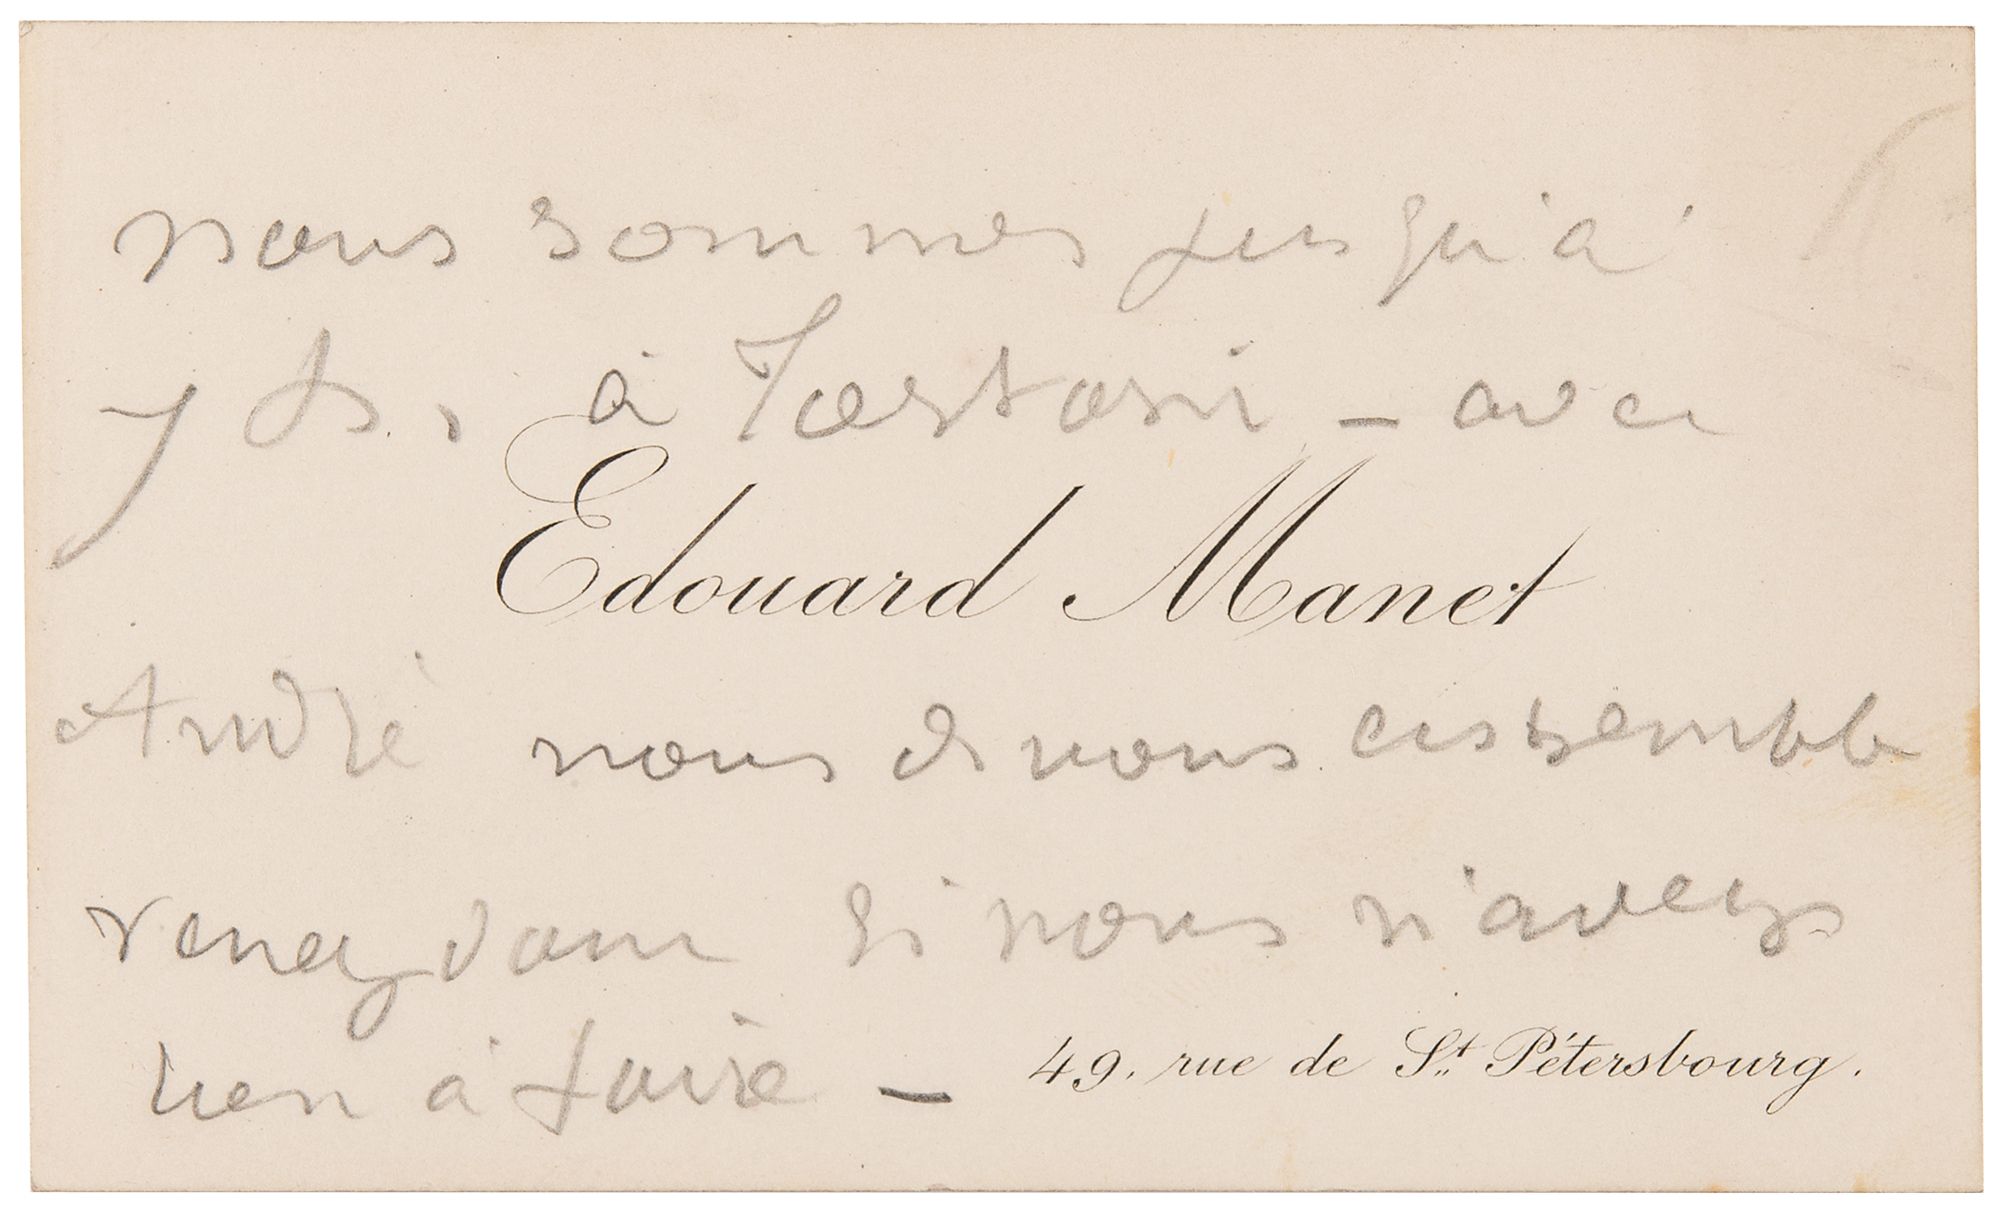 nous sommes jusqu'à
7 h. à Tortoni – avec
Edouard Manet
André nous dinons ensemble
venez donc si vous n'avez
rien à faire – 49, rue de St. Pétersbourg.